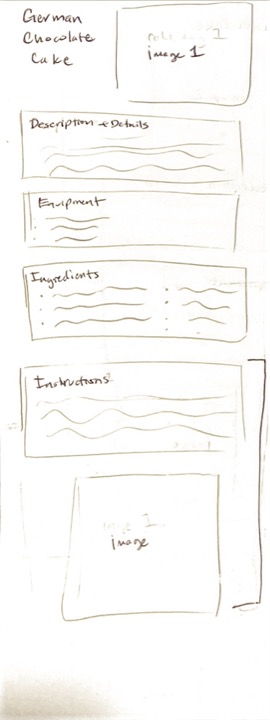 German
Chocolate
Cake
image 1
Description + Details
Equipment
Ingredients
Instructions
image